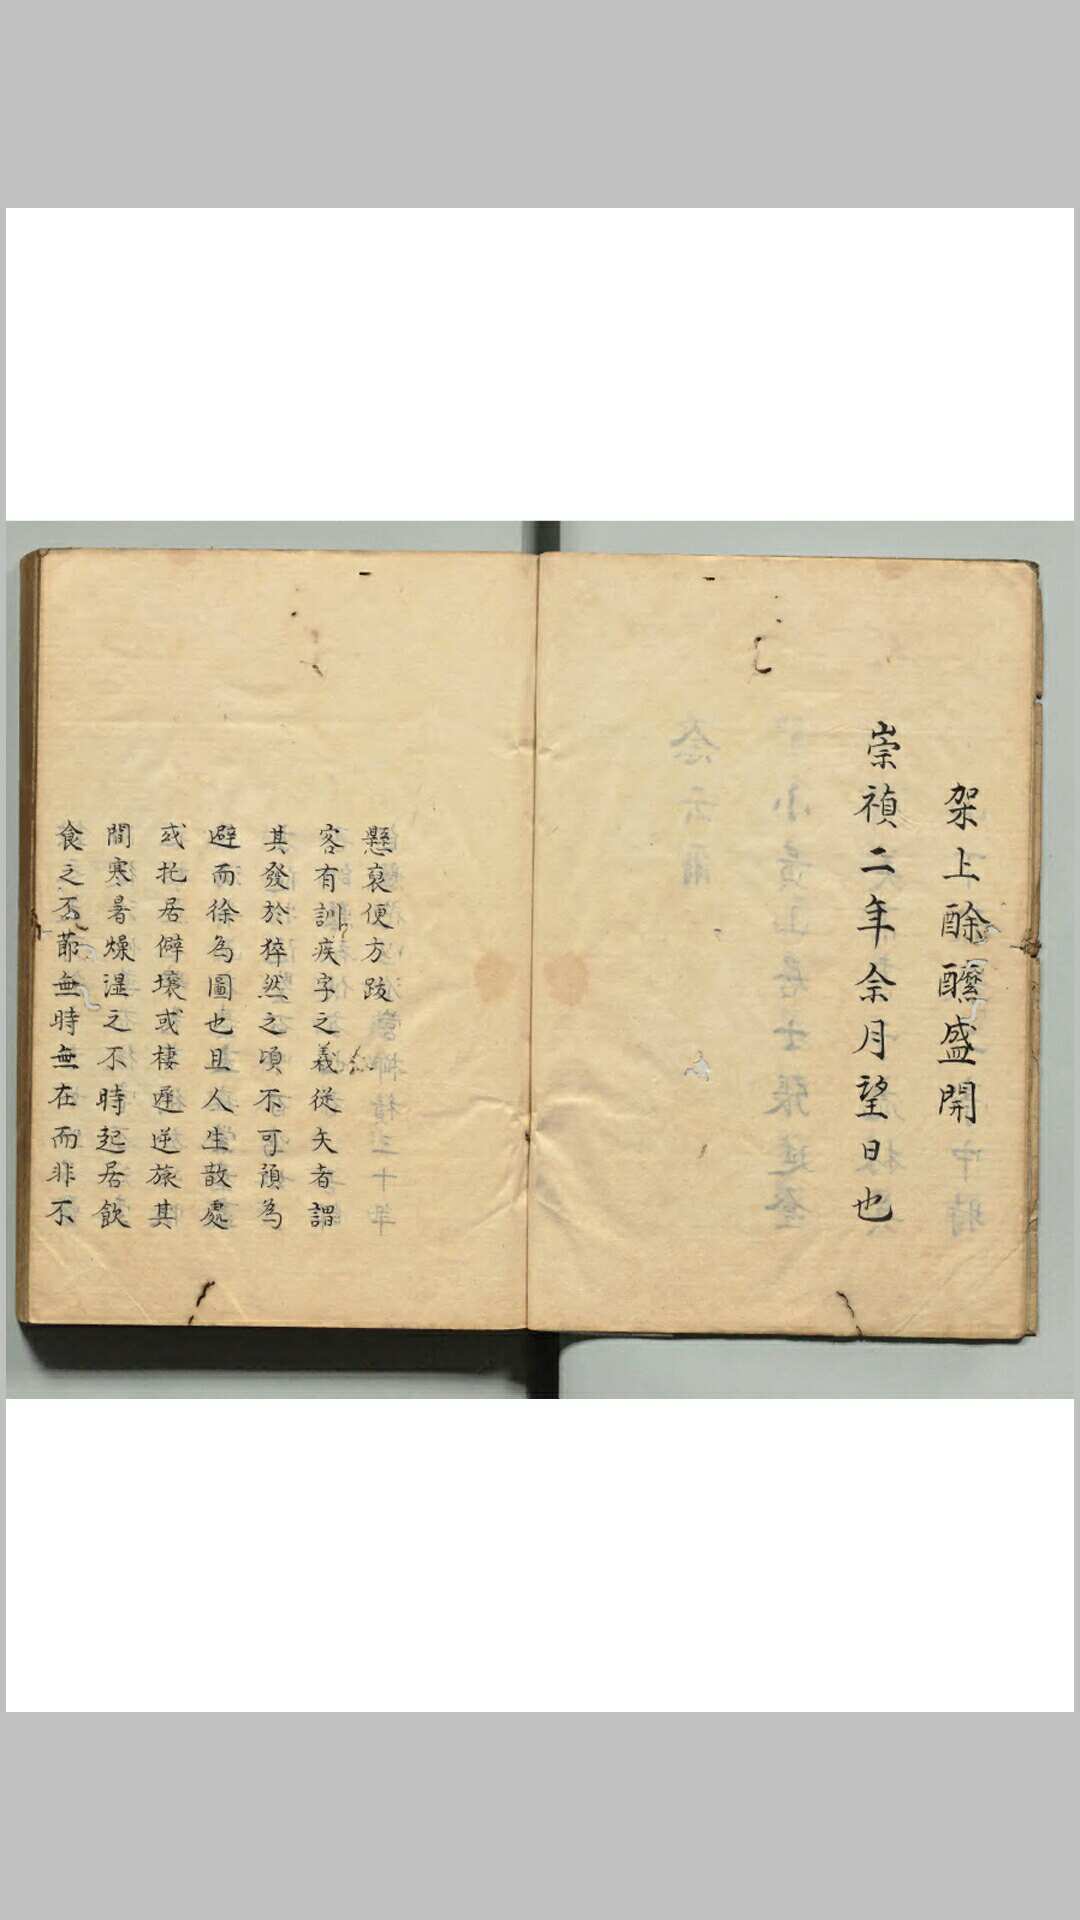 架上酴醾盛開
崇禎二年余月望日也
懸袞便方跋
客有訓疾字之義從矢者謂
其發於猝然之頃不可預為
避而徐為圖也且人生散處
或托居僻壤或棲遲逆旅其
間寒暑燥溼之不時起居飲
食之不節無時無在而非不